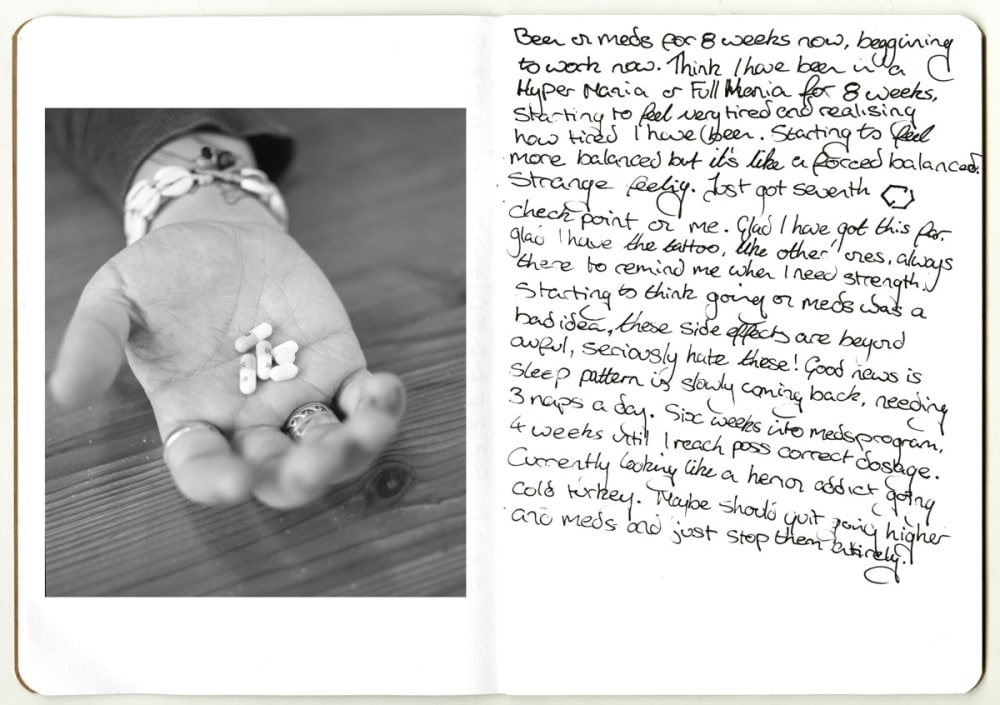 Been on meds for 8 weeks now, beggining
to work now. Think I have been in a
Hyper Mania or Full Mania for 8 weeks,
starting to feel very tired and realising
how tired I have been. Starting to feel
more balanced but it's like a forced balanced.
Strange feelig. Just got seventh
check point on me. Glad I have got this far.
glad I have the tattoo, like other ones, always
there to remind me when I need strength.
Starting to think going on meds was a
bad idea, these side effects are beyond
awful, seriously hate these! Good news is
sleep pattern is slowly coming back, needing
3 naps a day. Six weeks into meds program,
4 weeks until I reach poss correct dosage.
Currently looking like a heron addict going
cold turkey. Maybe should quit going higher
and meds and just stop them entirely.